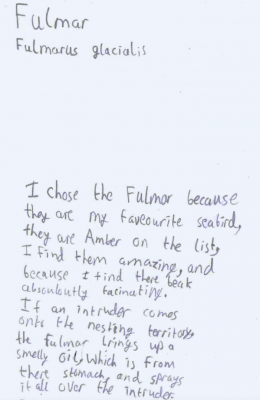 Fulmar
Fulmarus glacialis
I chose the Fulmar because
they are my faveourite seabird,
they are Amber on the list,
I find them amazing, and
because I find there beak
absouloutly facinating.
If an intruder comes
onto the nesting territory
the fulmar brings up a
smelly oil, which is from
there stomach, and sprays
it all over the intruder.